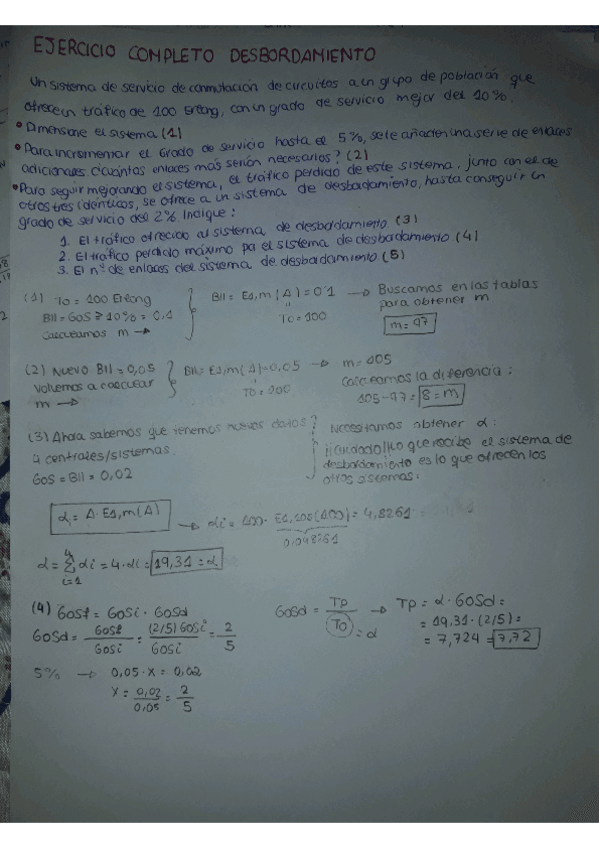 EJERCICIO COMPLETO DESBORDAMIENTO
Un sistema de servicio de conmutación de circuitos a un grupo de población que
ofrece un tráfico de 100 Erlang, con un grado de servicio mejor del 10%.
• Dimensione el sistema (1)
• Para incrementar el Grado de servicio hasta el 5%, se le añaden una serie de enlaces
adicionales ¿cuántos enlaces más serían necesarios? (2)
• Para seguir mejorando el sistema, el tráfico perdido de este sistema, junto con el de
otros tres idénticos, se ofrece a un sistema de desbordamiento, hasta conseguir un
grado de servicio del 2%. Indique:
1. El tráfico ofrecido al sistema de desbordamiento (3)
2. El tráfico perdido máximo pa el sistema de desbordamiento (4)
3. El nº de enlaces del sistema de desbordamiento (5)
(1) To = 100 Erlang
Bll = GoS ≥ 10% = 0,1
Calculamos m →
Bll = E1,m(A) = 0'1
To = 100
→ Buscamos en las tablas
para obtener m
m = 97
(2) Nuevo Bll = 0,05
Volvemos a calcular
m →
Bll = E1,m(A) = 0,05 → m = 105
To = 100
Calculamos la diferencia:
105-97 = 8 = m
(3) Ahora sabemos que tenemos nuevos datos
4 centrales/sistemas
GoS = Bll = 0,02
Necesitamos obtener α:
¡¡Cuidado!! Lo que recibe el sistema de
desbordamiento es lo que ofrecen los
otros sistemas:
α = A · E1,m(A) → αi = 100 · E1,105(100) = 4,8261
0,048261
α = Σ αi = 4·αi = 19,31 = α
4
i=1
(4) GoSt = GoSi · GoSd
GoSd = GoSt / GoSi = (2/5) GoSi / GoSi = 2/5
5% → 0,05 · x = 0,02
x = 0,02 / 0,05 = 2/5
GoSd = Tp / To = α → Tp = α · GoSd =
= 19,31 · (2/5) =
= 7,724 = 7,72